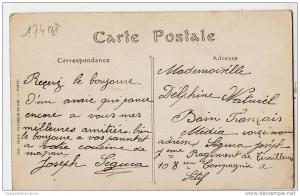 17408
Carte Postale
Correspondance
Adresse
Reçevez le bonjoure
D'un amie qui pance
encore a vous mes
meilleures amitiér, bien
le bonjoure a vos parents et
a votre cousine de
ma part
Joseph Segura
Mademoiselle
Delphine
Bain Français
Midia voiçi mon
adress Segura joseph
Regiment de tirailleurs
10 8 eme Compagnie a
Setif